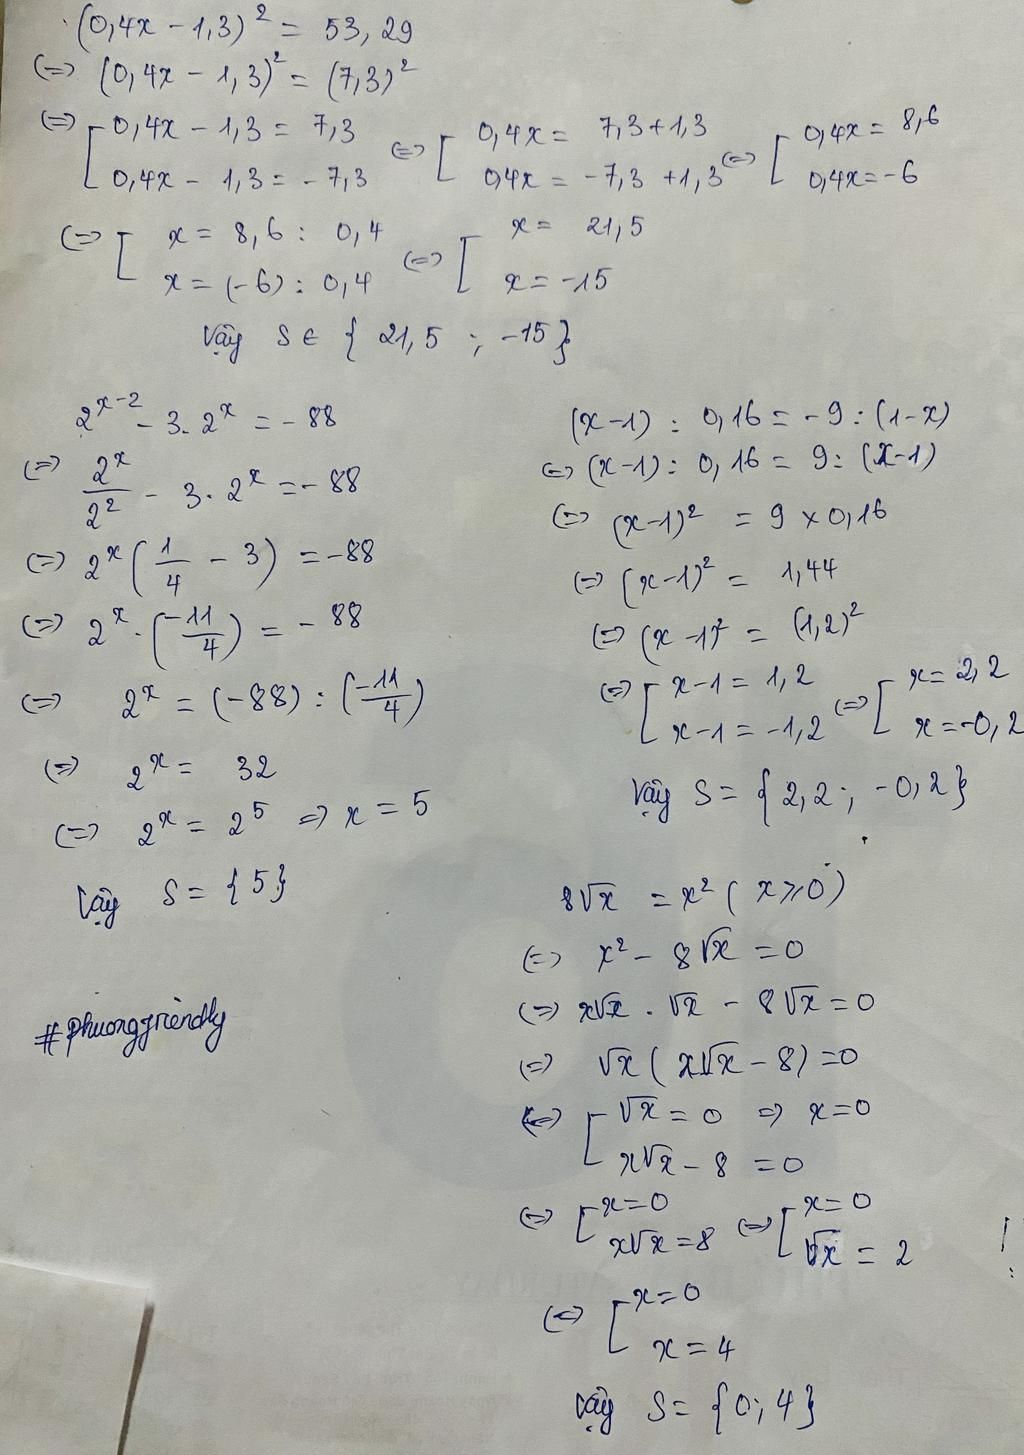 (0,4x - 1,3)² = 53,29
(=) (0,4x - 1,3)² = (7,3)²
(=) [ 0,4x - 1,3 = 7,3 (=) [ 0,4x = 7,3 + 1,3 (=) [ 0,4x = 8,6
0,4x - 1,3 = -7,3 0,4x = -7,3 + 1,3 0,4x = -6
(=) [ x = 8,6 : 0,4 (=) [ x = 21,5
x = (-6) : 0,4 x = -15
Vậy S ∈ { 21,5 ; -15 }
2^(x-2) - 3. 2^x = -88
(=) 2^x/2² - 3. 2^x = -88
(=) 2^x (1/4 - 3) = -88
(=) 2^x . (-11/4) = -88
(=) 2^x = (-88) : (-11/4)
(=) 2^x = 32
(=) 2^x = 2^5 => x = 5
Vậy S = {5}
#phuongfriendly
(x-1) : 0,16 = -9 : (1-x)
(=) (x-1) : 0,16 = 9 : (x-1)
(=) (x-1)² = 9 x 0,16
(=) (x-1)² = 1,44
(=) (x-1)² = (1,2)²
(=) [ x-1 = 1,2 (=) [ x = 2,2
x-1 = -1,2 x = -0,2
Vậy S = { 2,2 ; -0,2 }
8√x = x² ( x ⩾ 0 )
(=) x² - 8√x = 0
(=) x√x . √x - 8√x = 0
(=) √x ( x√x - 8 ) = 0
(=) [ √x = 0 => x = 0
x√x - 8 = 0
(=) [ x = 0 (=) [ x = 0
x√x = 8 √x = 2
(=) [ x = 0
x = 4
Vậy S = { 0 ; 4 }